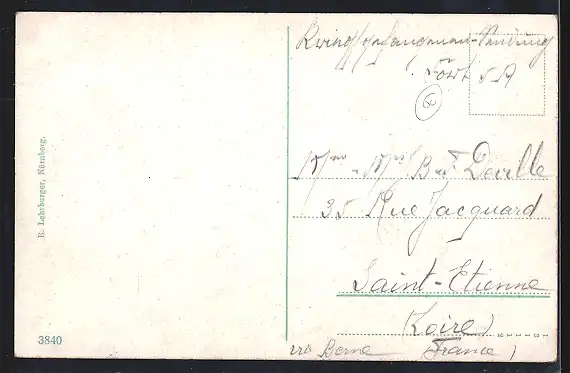 R. Lehrburger, Nürnberg.
3840
Kriegsgefangenen-Sendung
Fort 5 A
35 Rue Jacquard
Saint-Etienne
(Loire)
via Berne (France)